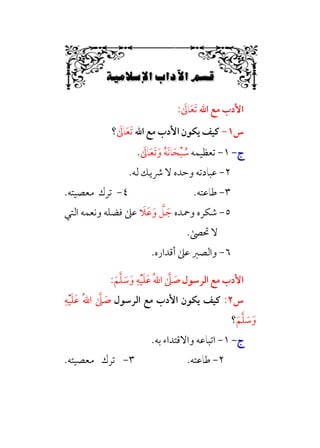 قسم الآداب الإسلامية
الأدب مع الله تَعَالَىٰ:
س١- كيف يكون الأدب مع الله تَعَالَىٰ؟
ج- ١- تعظيمه سُبْحَانَهُ وَتَعَالَىٰ.
٢- عبادته وحده لا شريك له.
٣- طاعته. ٤- ترك معصيته.
٥- شكره وحمده جَلَّ وَعَلَا علىٰ فضله ونعمه التي
لا تحصىٰ.
٦- والصبر علىٰ أقداره.
الأدب مع الرسول صَلَّىٰ اللهُ عَلَيْهِ وَسَلَّمَ:
س٢: كيف يكون الأدب مع الرسول صَلَّىٰ اللهُ عَلَيْهِ
وَسَلَّمَ؟
ج- ١- اتباعه والاقتداء به.
٢- طاعته. ٣- ترك معصيته.